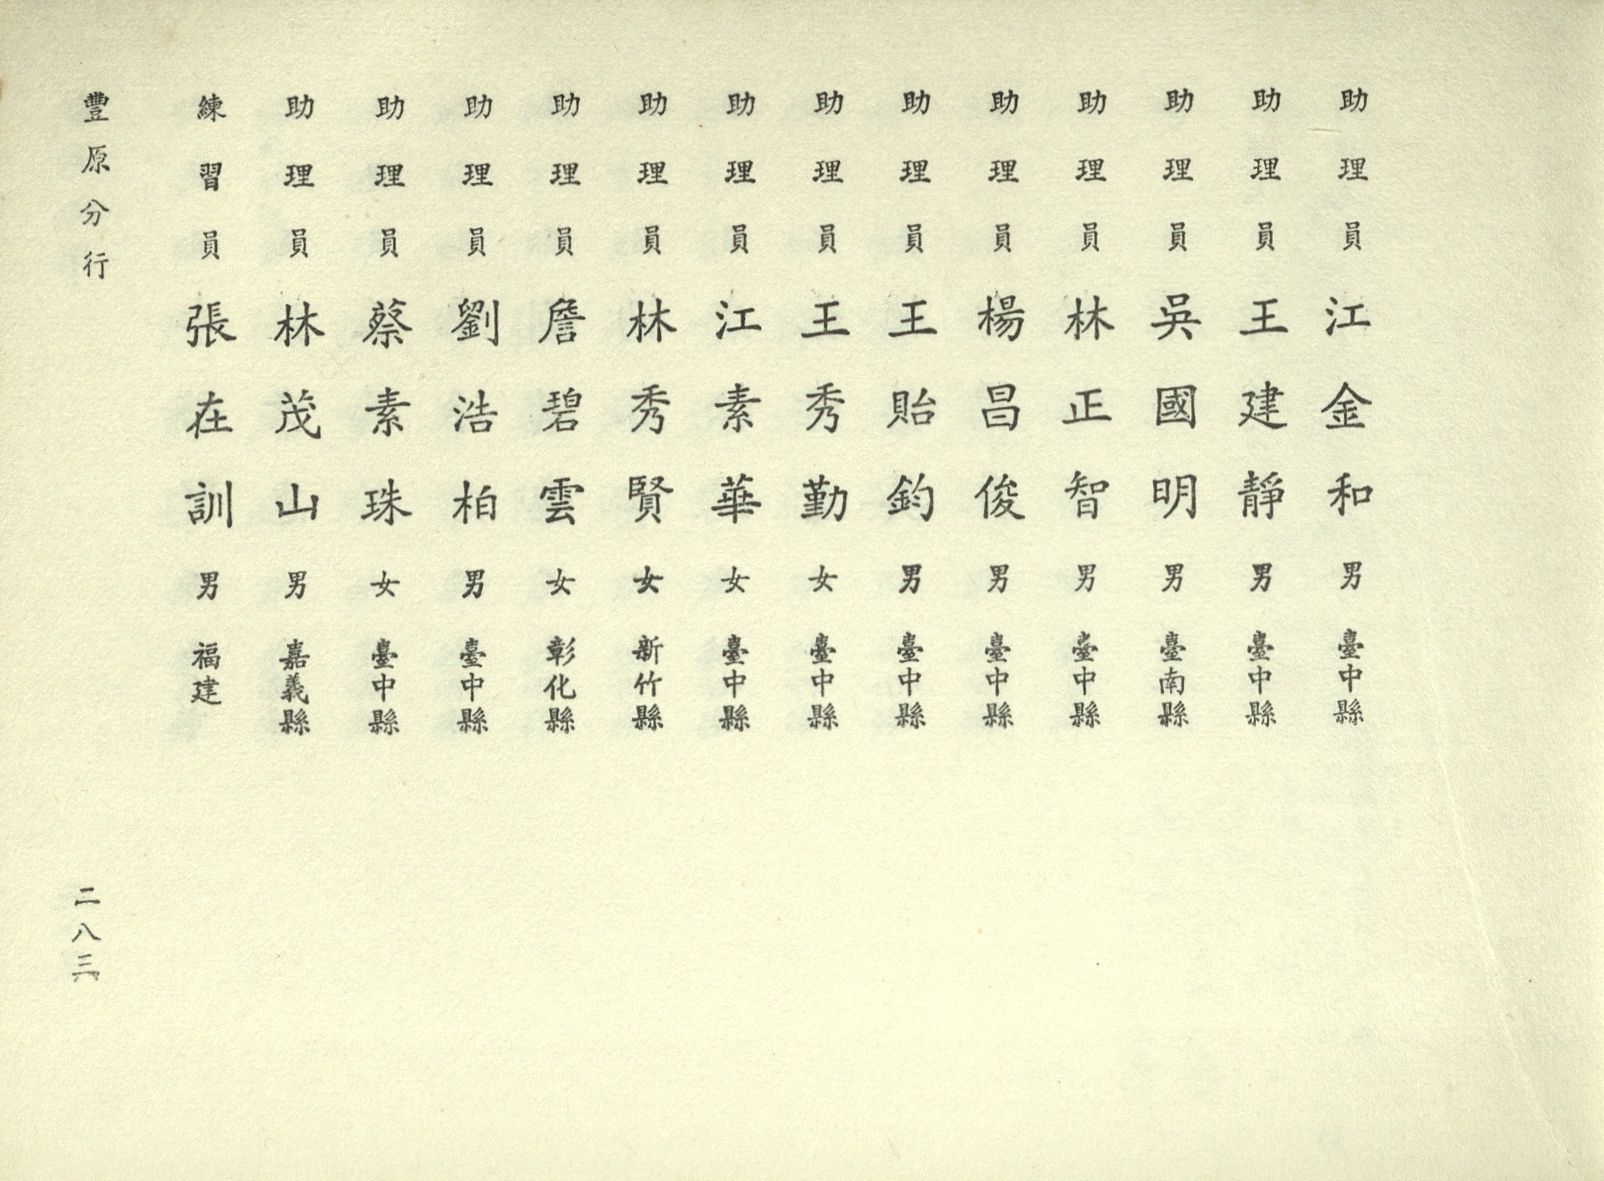 助理員 江金和 男 臺中縣
助理員 王建靜 男 臺中縣
助理員 吳國明 男 臺南縣
助理員 林正智 男 臺中縣
助理員 楊昌俊 男 臺中縣
助理員 王貽鈞 男 臺中縣
助理員 王秀勤 女 臺中縣
助理員 江素華 女 臺中縣
助理員 林秀賢 女 新竹縣
助理員 詹碧雲 女 彰化縣
助理員 劉浩柏 男 臺中縣
助理員 蔡素珠 女 臺中縣
助理員 林茂山 男 嘉義縣
練習員 張在訓 男 福建
豐原分行
二八三